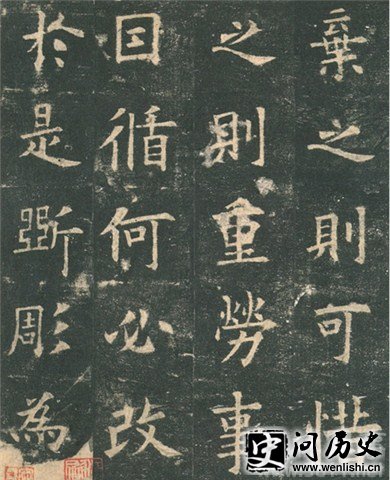 棄之則可惜
之則重勞事
因循何必改
於是斲彫為
问历史
www.wenlishi.cn